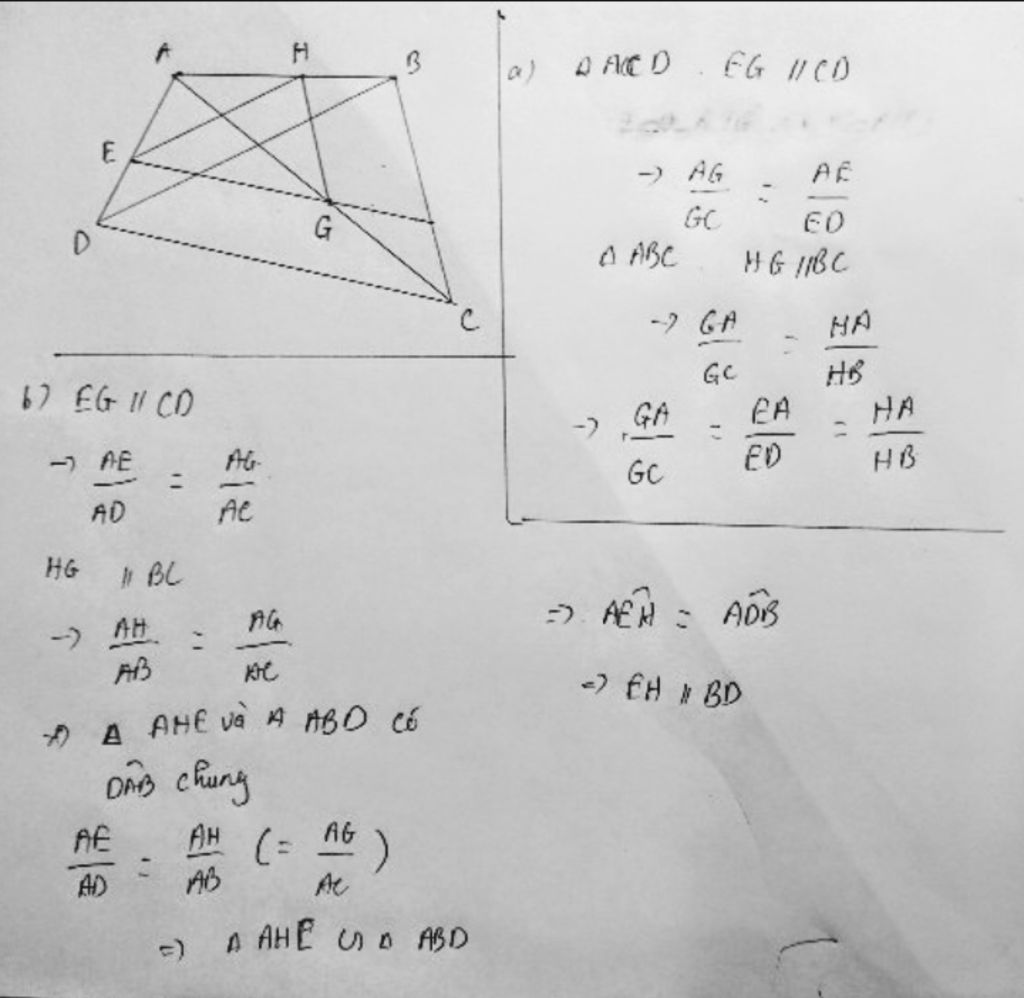 A H B
E
G
D
C
a) Δ ACD . EG // CD
-> AG/GC = AE/ED
Δ ABC HG // BC
-> GA/GC = HA/HB
-> GA/GC = EA/ED = HA/HB
b) EG // CD
-> AE/AD = AG/AC
HG // BC
-> AH/AB = AG/AC
-> Δ AHE và Δ ABD có
DÂB chung
AE/AD = AH/AB (= AG/AC)
=> Δ AHE ∽ Δ ABD
=> AÊH = AD̂B
=> EH // BD